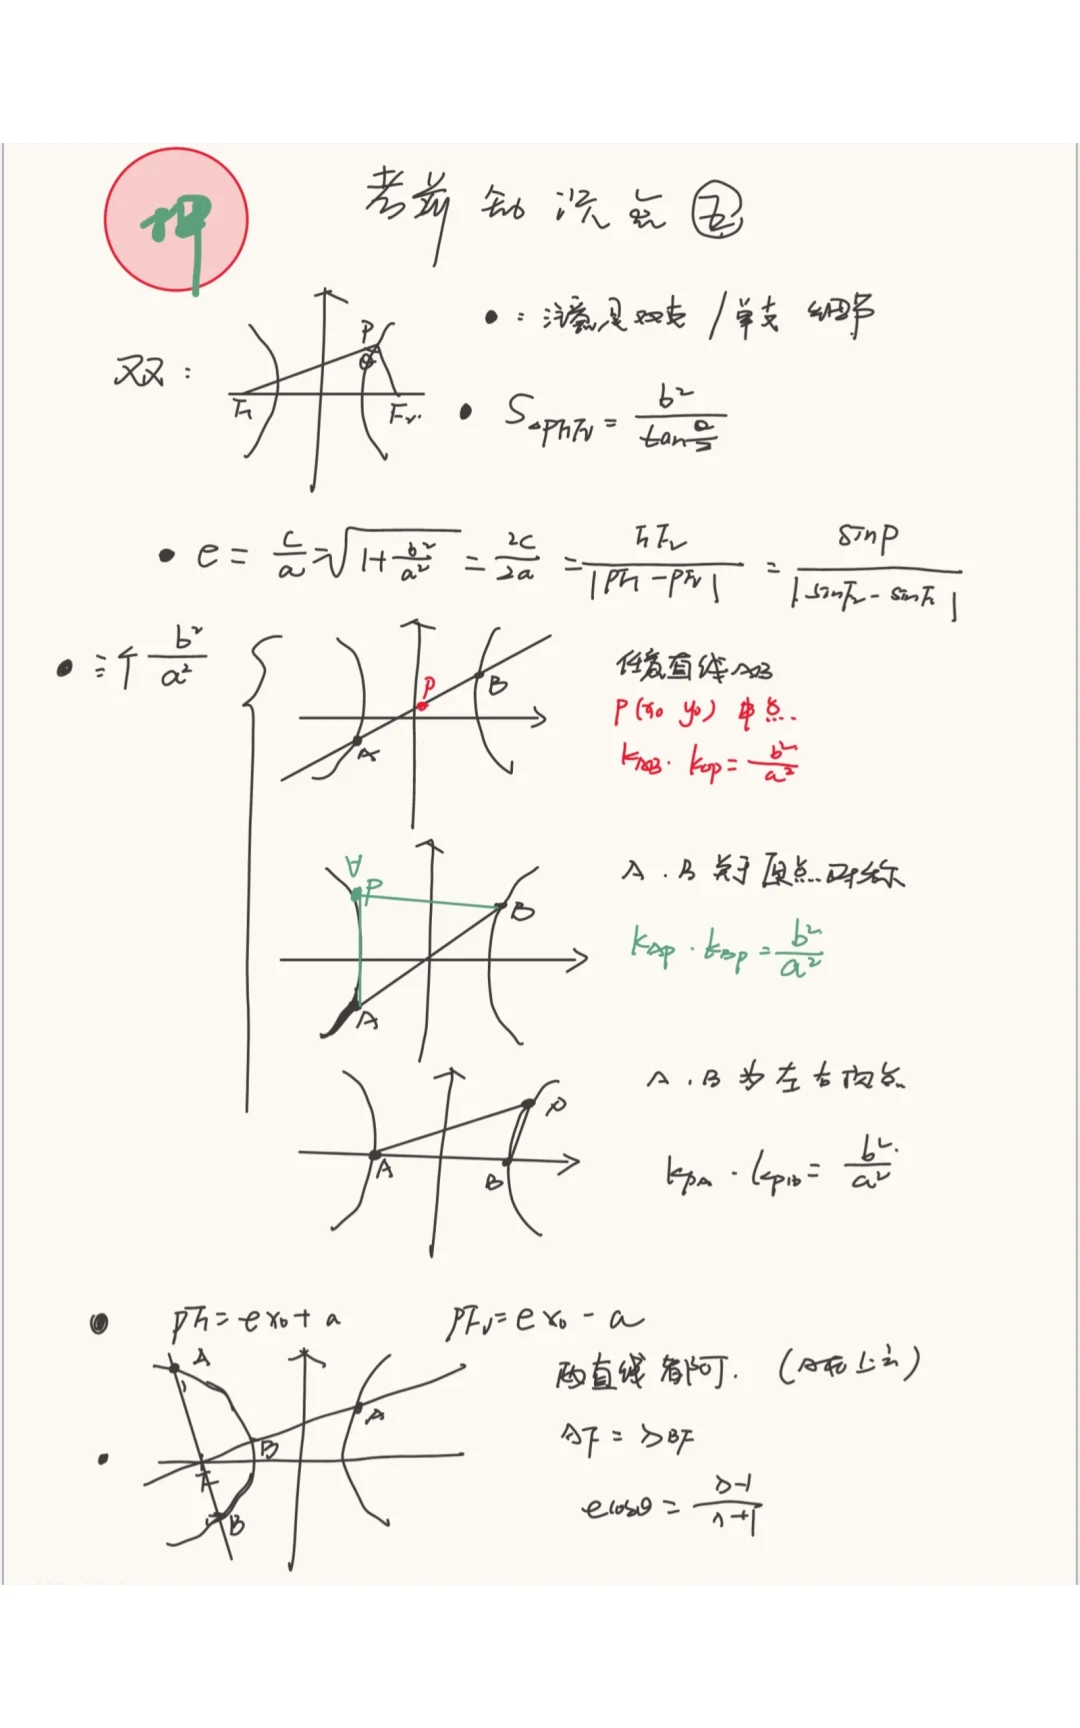 押
考前知识点五
双:
P
θ
F₁
F₂
• : 注意是双支/单支 细节
• S△PF₁F₂ = b²/tan(θ/2)
• e = c/a = √(1+b²/a²) = 2c/2a = F₁F₂/|PF₁-PF₂| = sinP/|sinF₂-sinF₁|
• 三个 b²/a²
P
B
A
任意直线AB
P(x₀ y₀) 中点.
kAB · kOP = b²/a²
∀
P
B
A
A.B 关于原点对称
kAP · kBP = b²/a²
P
A
B
A.B 为左右顶点
kPA · kPB = b²/a²
• PF₁=ex₀+a PF₂=ex₀-a
A
A
B
F
B
两直线 (A在上方)
AF = λBF
ecosθ = λ-1/λ+1